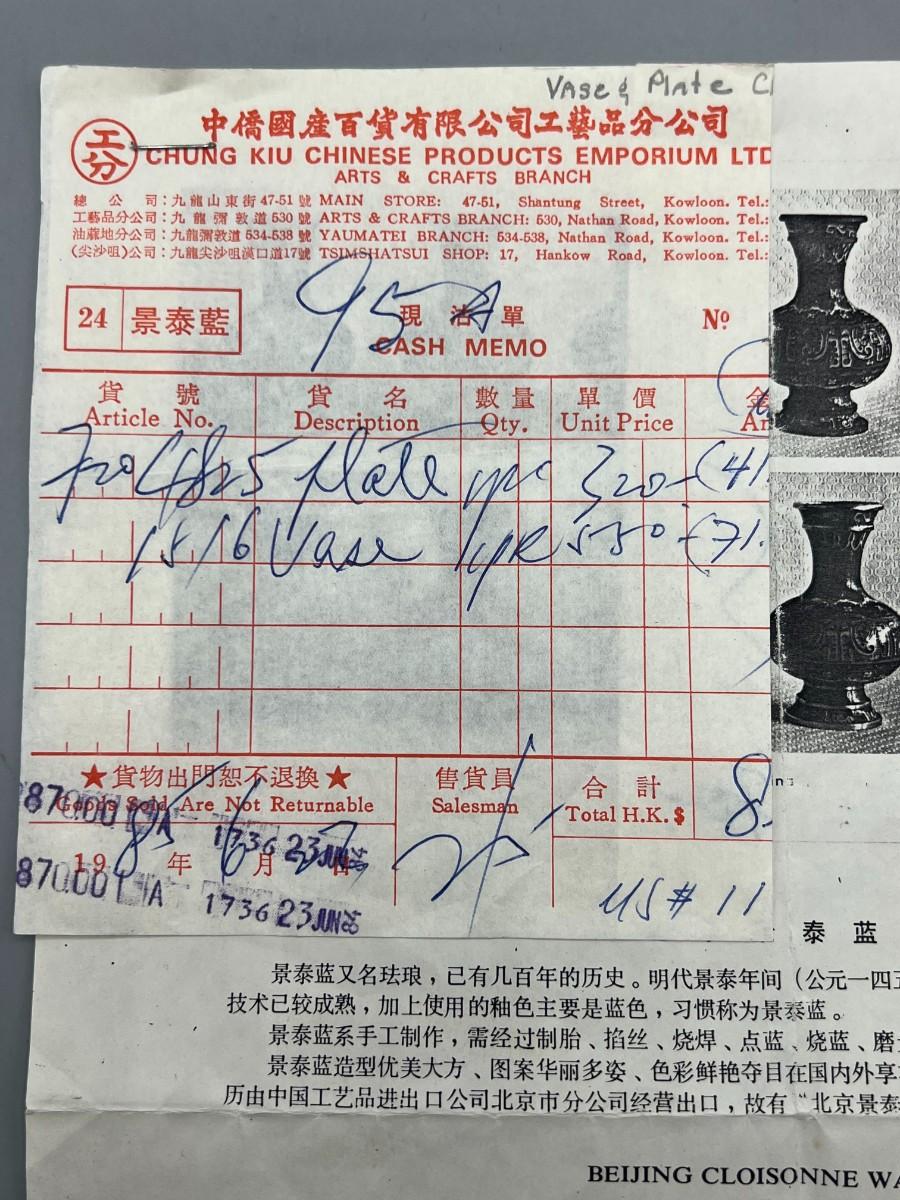 Vase & Plate C
工分
中僑國產百貨有限公司工藝品分公司
CHUNG KIU CHINESE PRODUCTS EMPORIUM LTD
ARTS & CRAFTS BRANCH
總公司:九龍山東街47-51號 MAIN STORE: 47-51, Shantung Street, Kowloon. Tel.:
工藝品分公司:九龍彌敦道530號 ARTS & CRAFTS BRANCH: 530, Nathan Road, Kowloon. Tel.:
油蔴地分公司:九龍彌敦道534-538號 YAUMATEI BRANCH: 534-538, Nathan Road, Kowloon. Tel.:
(尖沙咀)公司:九龍尖沙咀漢口道17號 TSIMSHATSUI SHOP: 17, Hankow Road, Kowloon. Tel.:
95A
24 景泰藍 現沽單 Nº
CASH MEMO
貨號 貨名 數量 單價 金
Article No. Description Qty. Unit Price Ar
4825 Plate 1pc 320- (41.
1516 Vase 1pc 550- (71.
★貨物出門恕不退換★ 售貨員 合計
Goods Sold Are Not Returnable Salesman Total H.K.$ 8
870.00 A 1736 23 JUN 85
1985年6月23日
870.00 A 1736 23 JUN 85
US# 11
泰蓝
景泰蓝又名珐琅，已有几百年的历史。明代景泰年间（公元一四五
技术已较成熟，加上使用的釉色主要是蓝色，习惯称为景泰蓝。
景泰蓝系手工制作，需经过制胎、掐丝、烧焊、点蓝、烧蓝、磨
景泰蓝造型优美大方、图案华丽多姿、色彩鲜艳夺目在国内外享
历由中国工艺品进出口公司北京市分公司经营出口，故有“北京景泰
BEIJING CLOISONNE WA